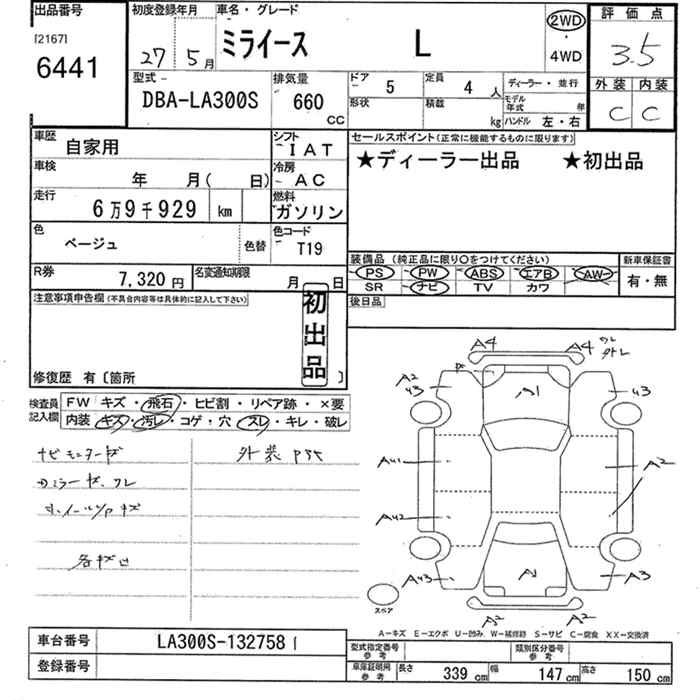 出品番号
[2167]
6441
初度登録年月
27年 5月
車名・グレード
ミライース L
2WD
・
4WD
評価点
3.5
外装 内装
C C
型式
DBA-LA300S
排気量
660 CC
ドア 5
形状
定員 4 人
積載 kg
ディーラー・並行
モデル年式 年
ハンドル 左・右
車歴 自家用
シフト IAT
車検 年 月( 日)
冷房 AC
走行 6万9千929 km
燃料 ガソリン
色 ベージュ 色替
色コード T19
R券 7,320円
名変通知期限 月 日
セールスポイント(正常に機能するものに限ります)
★ディーラー出品 ★初出品
装備品(純正品に限り○をつけてください)
PS PW ABS エアB AW
SR ナビ TV カワ
新車保証書
有・無
後日品
注意事項申告欄(不具合内容等は具体的に記入して下さい)
初出品
修復歴 有〔箇所 〕
検査員記入欄
FW キズ・飛石・ヒビ割・リペア跡・×要
内装 キズ・汚レ・コゲ・穴・スレ・キレ・破レ
ナビモニターキズ
外装PSE
各キズ凹
A4 A4
A1
A2
43
43
A41
A2
A42
A43
A3
A1
A2 A2
スペア
A―キズ E―エクボ U―凹み W―補修跡 S―サビ C―腐食 XX―交換済
車台番号 LA300S-1327581
登録番号
型式指定番号 参考
類別区分番号 参考
車庫証明用 参考
長さ 339 cm 幅 147 cm 高さ 150 cm